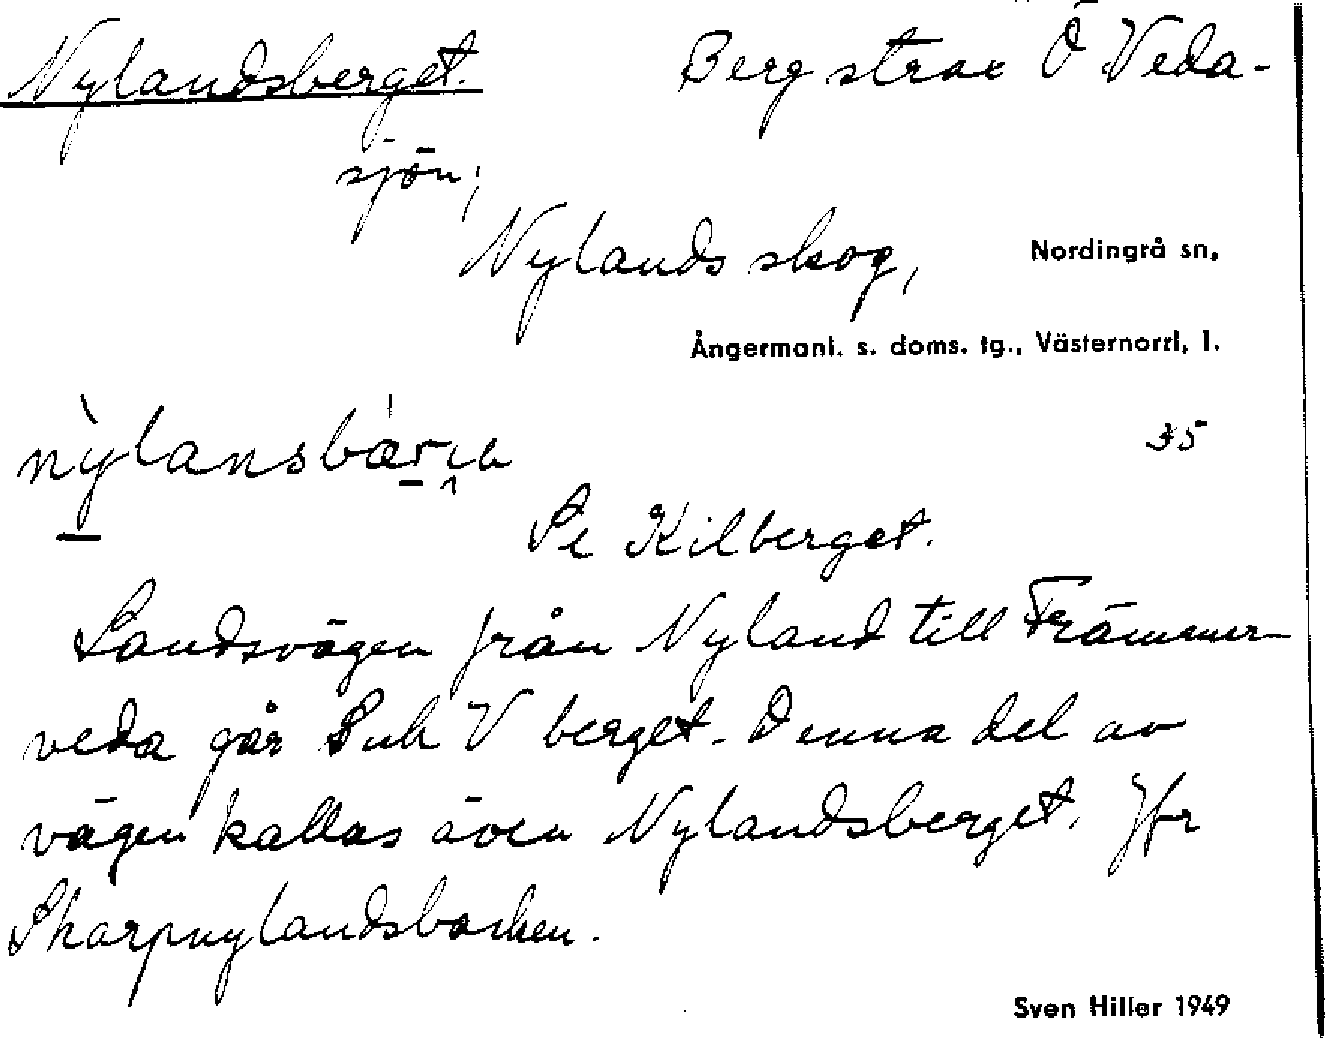 Nylandsberget. Berg strax Ö Veda-
sjön,
Nylands skog, Nordingrå sn,
Ångermanl. s. doms. tg., Västernorrl. l.
35
Se Kilberget.
Landsvägen från Nyland till Främmer-
veda går S och V berget. Denna del av
vägen kallas även Nylandsberget. Jfr
Skarpnylandsbacken.
Sven Hiller 1949